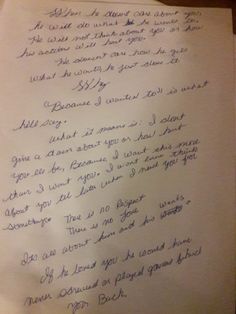 When he doesnt care about you,
he will do what he wants to.
He will not think about you or how
his actions will hurt you.
He doesnt care how he gets
what he wants, he just does it
"Because I wanted to" is what
he'll say.
What it means is: I dont
give a damn about you or how hurt
you'll be, Because, I want this more
than I want you. I wont even think
about you til later when I need you for
something. There is no Respect
There is no Love
Its all about him and his wants.
If he loved you he would have
never screwed or played games behind
your Back.